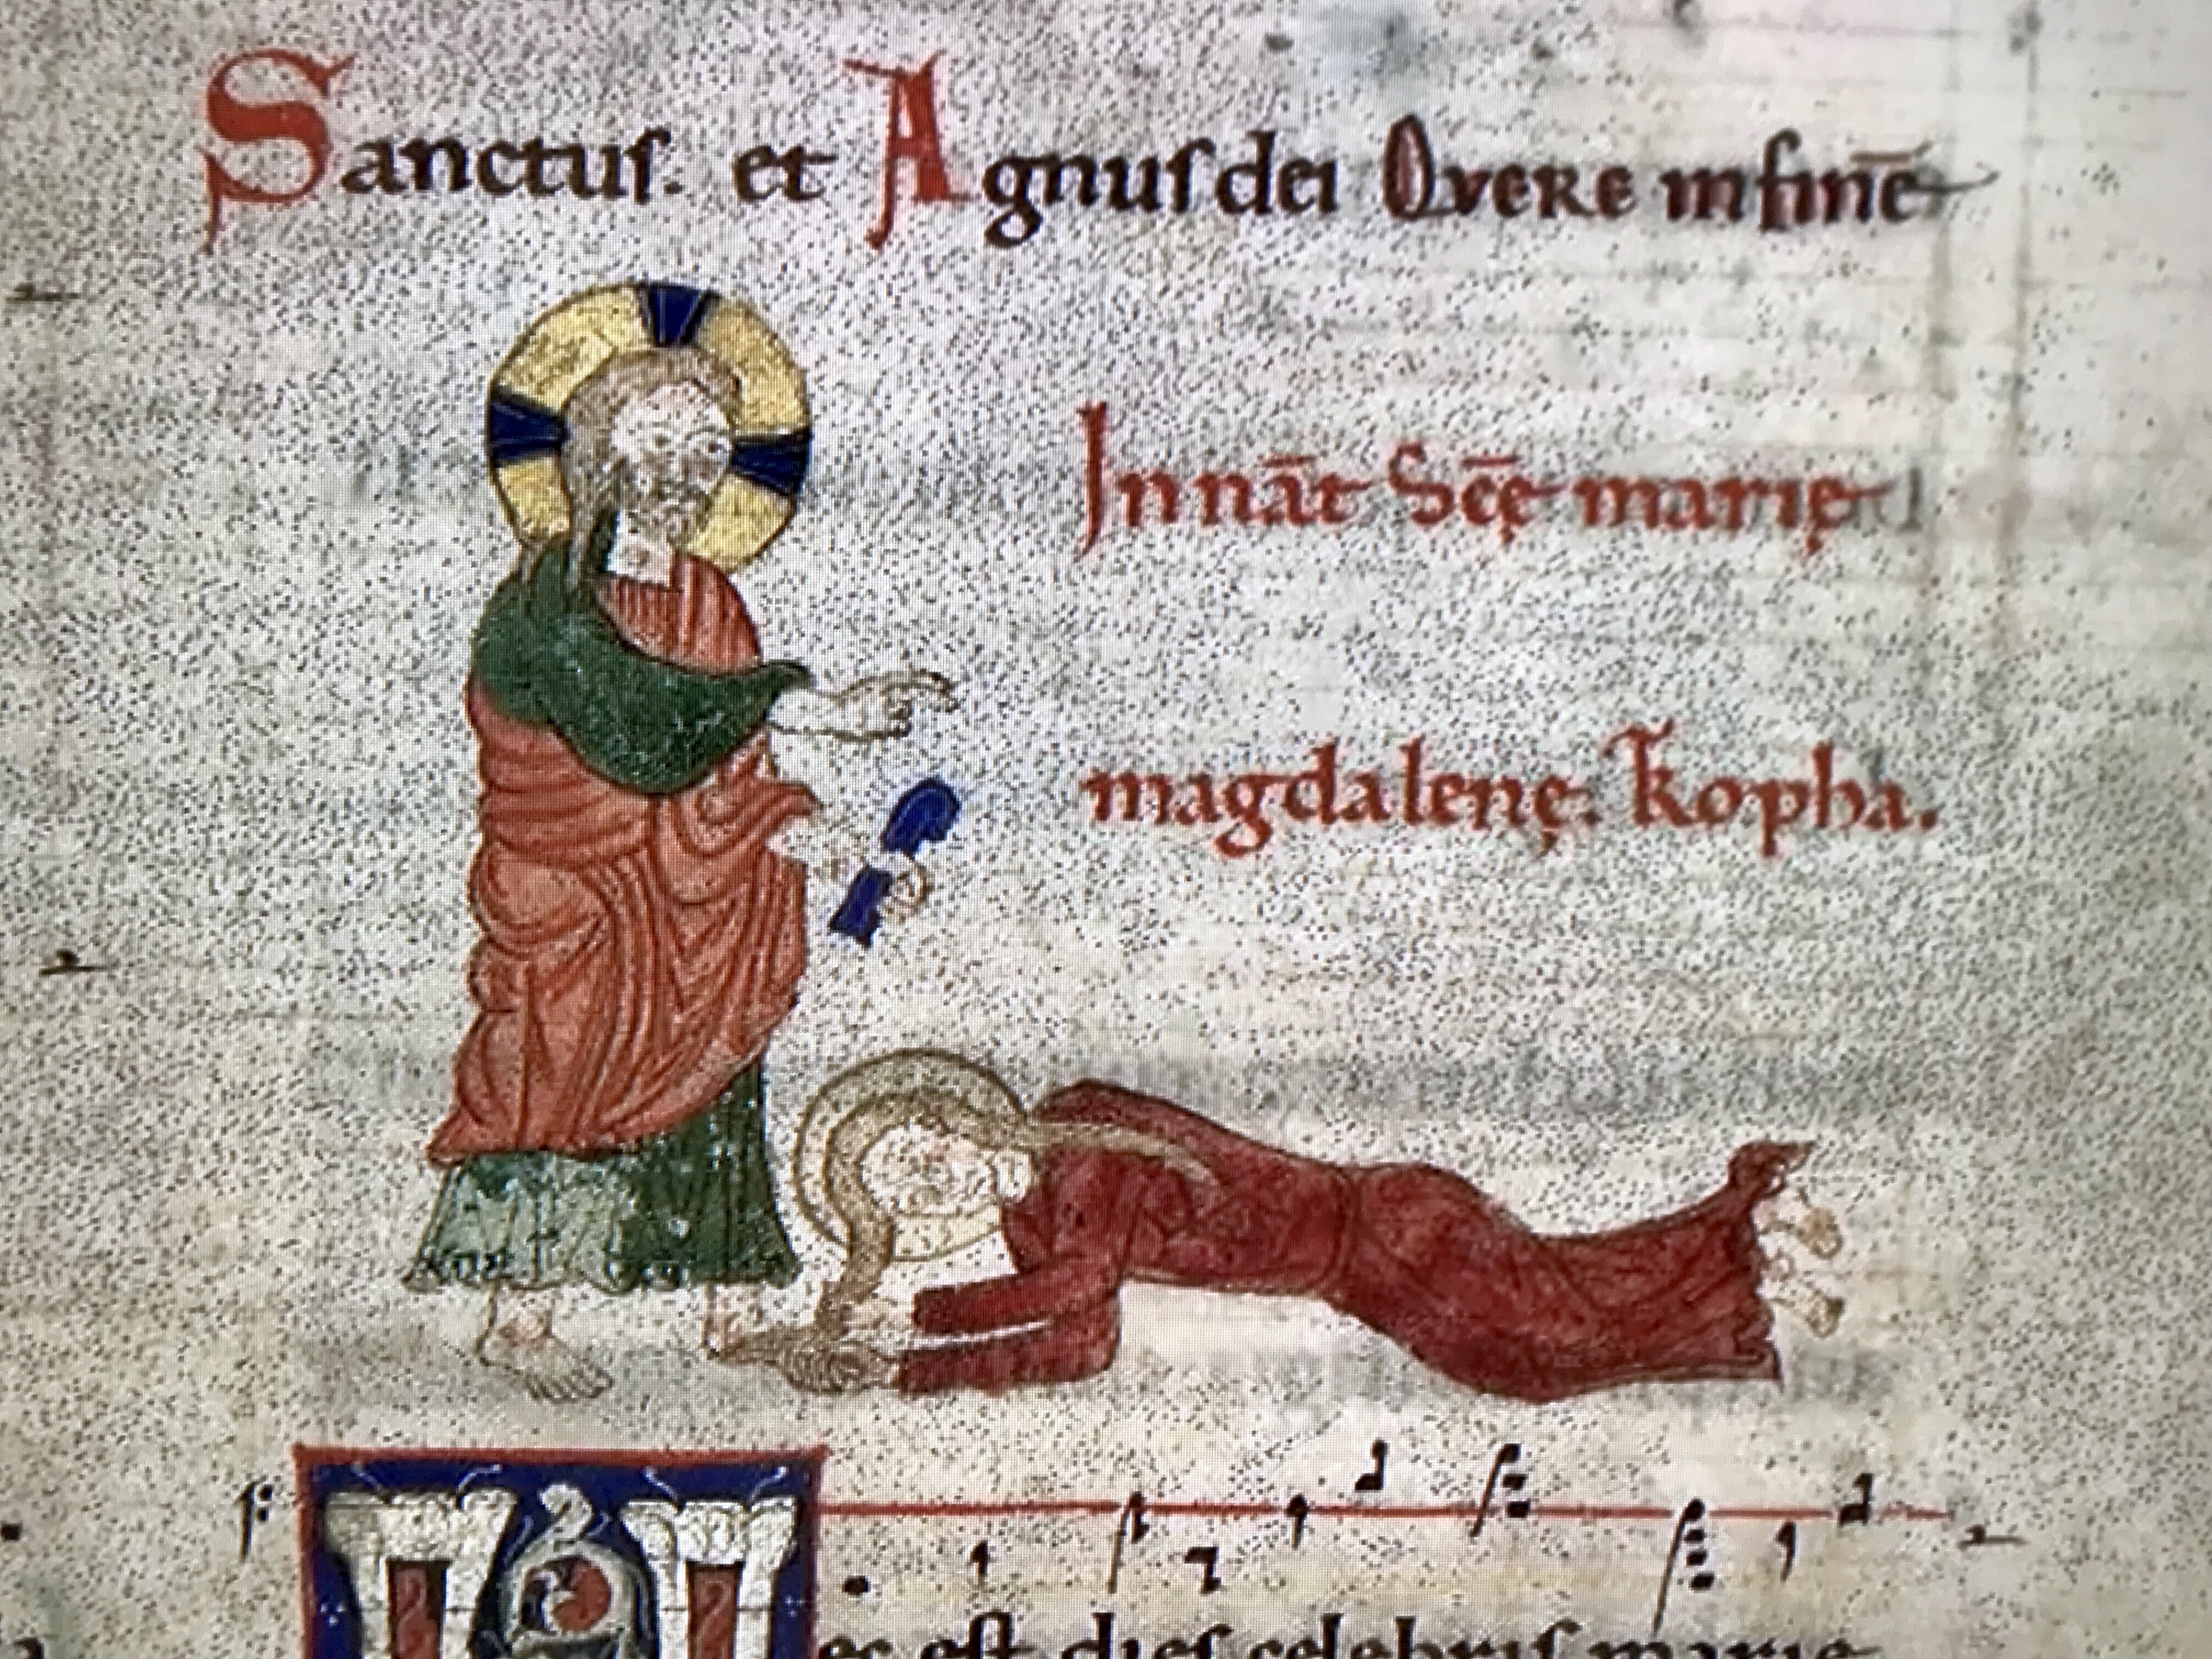 Sanctus. et Agnus dei O vere in finē
In nāt Scę̄ marię
magdalenę. k̄opha.
ec est dies celebris marie